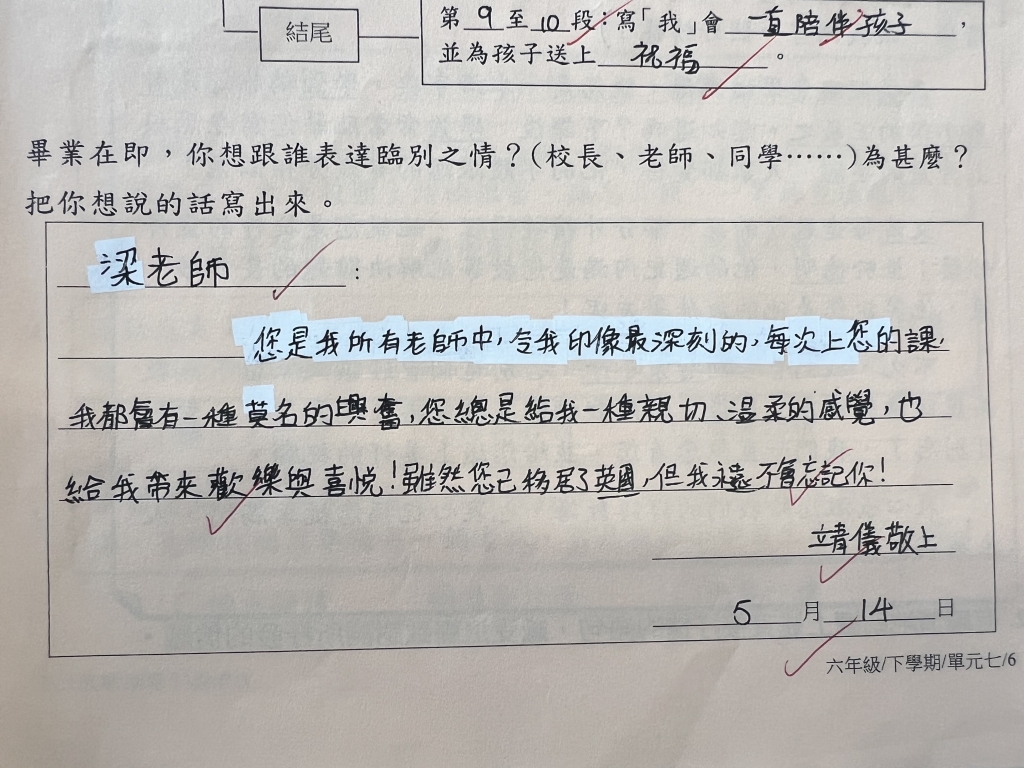 第9至10段：寫「我」會一直陪伴孩子，
結尾
並為孩子送上祝福。
畢業在即，你想跟誰表達臨別之情？(校長、老師、同學……)為甚麼？
把你想說的話寫出來。
梁老師：
您是我所有老師中，令我印像最深刻的，每次上您的課，
我都會有一種莫名的興奮，您總是給我一種親切、溫柔的感覺，也
給我帶來歡樂與喜悅！雖然您已移居了英國，但我永遠不會忘記你！
靖儀敬上
5月14日
六年級/下學期/單元七/6